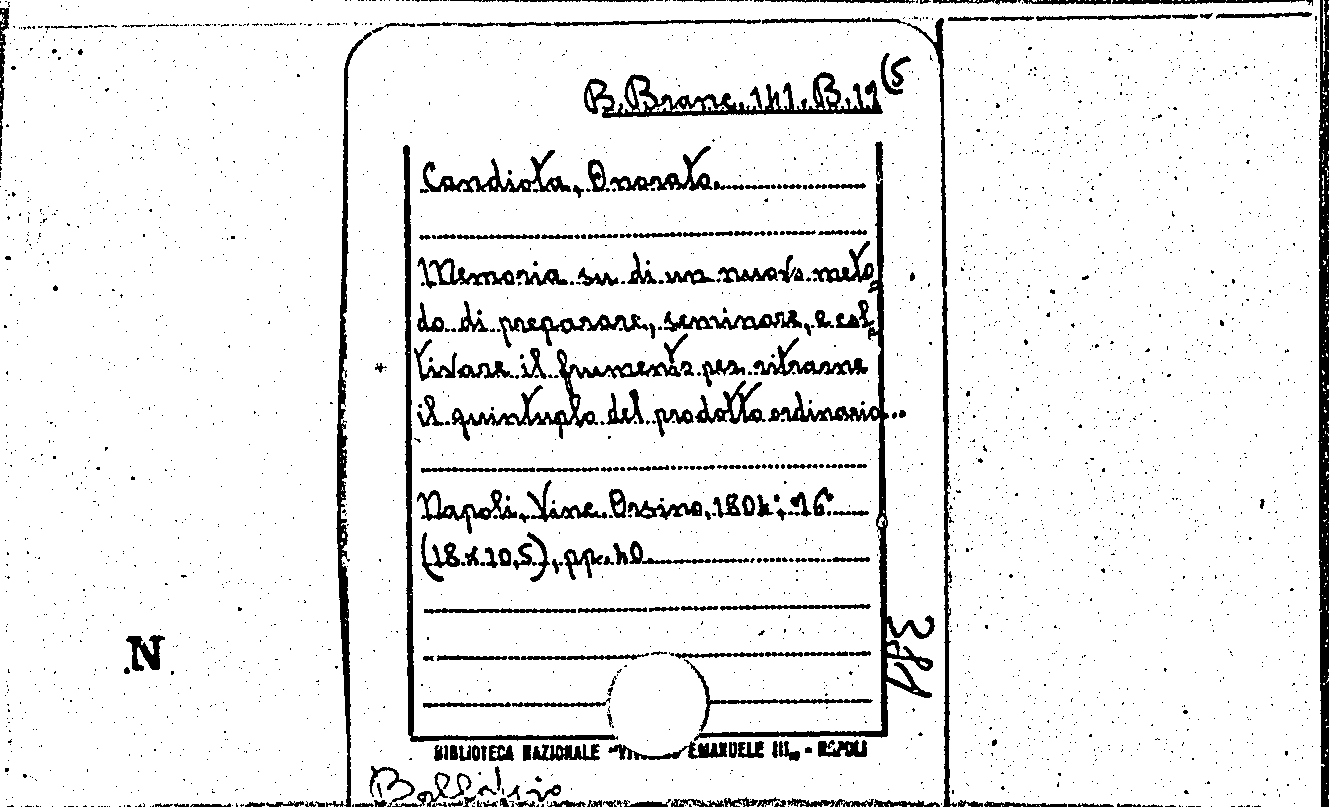 B. Branc. 141. B. 11 (5
Candiota, Onorato.
Memoria su di un nuovo meto=
do di preparare, seminare, e col=
* tivare il frumento per ritrarne
il quintuplo del prodotto ordinario...
Napoli, Vinc. Orsino, 1804; 16°
(18 x 10,5), pp. 40.
N
BIBLIOTECA NAZIONALE "VITT EMANUELE III" - NAPOLI